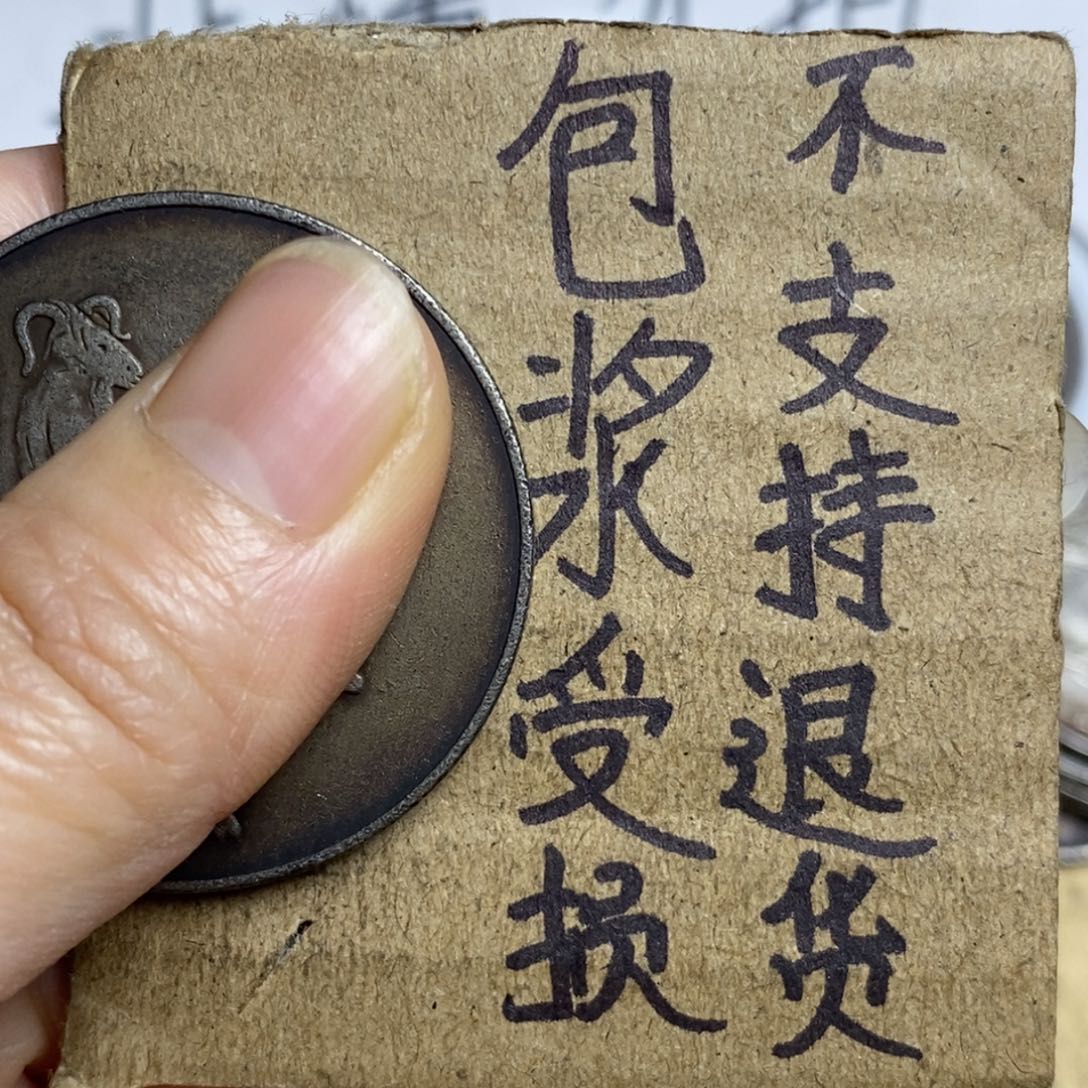 不支持退货
包浆受损